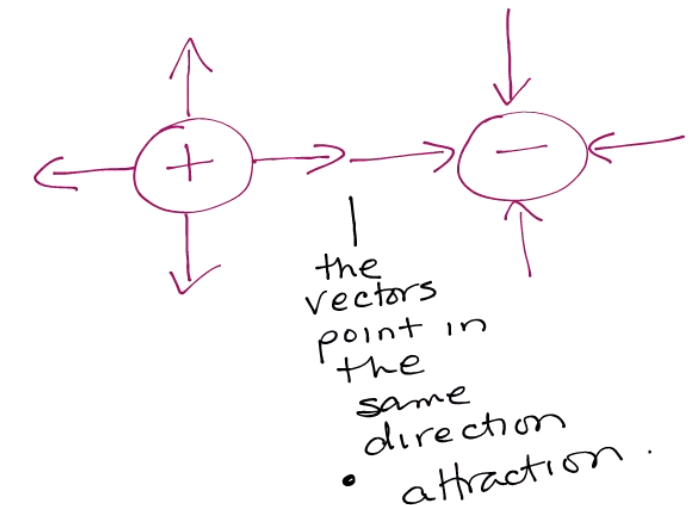 +
−
the
vectors
point in
the
same
direction
• attraction.